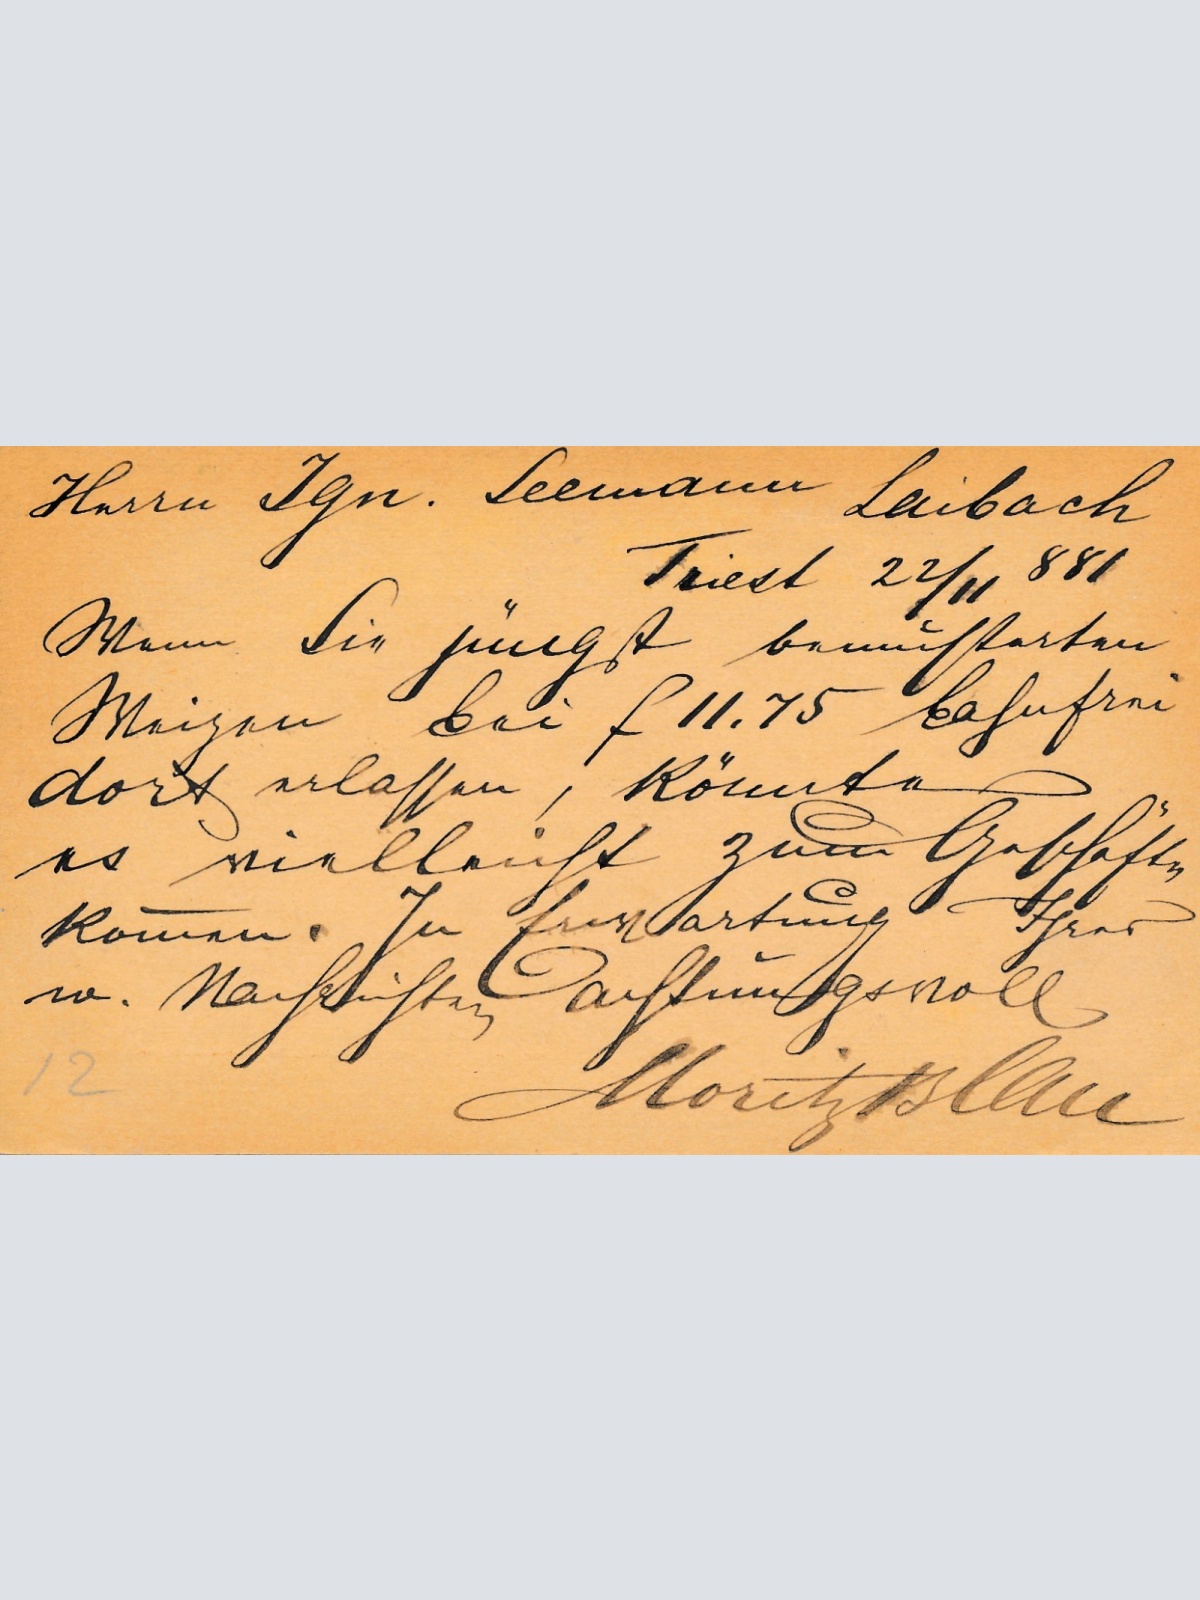 Herrn Ign. Seemann Laibach
Triest 22/11 881
Wenn Sie jüngst bemusterten
Weizen bei f 11.75 bahnfrei
dort erlassen, könnte
es vielleicht zum Geschäfte
kom̄en. In Erwartung Ihrer
w. Nachrichten achtungsvoll
Moritz Blau
12